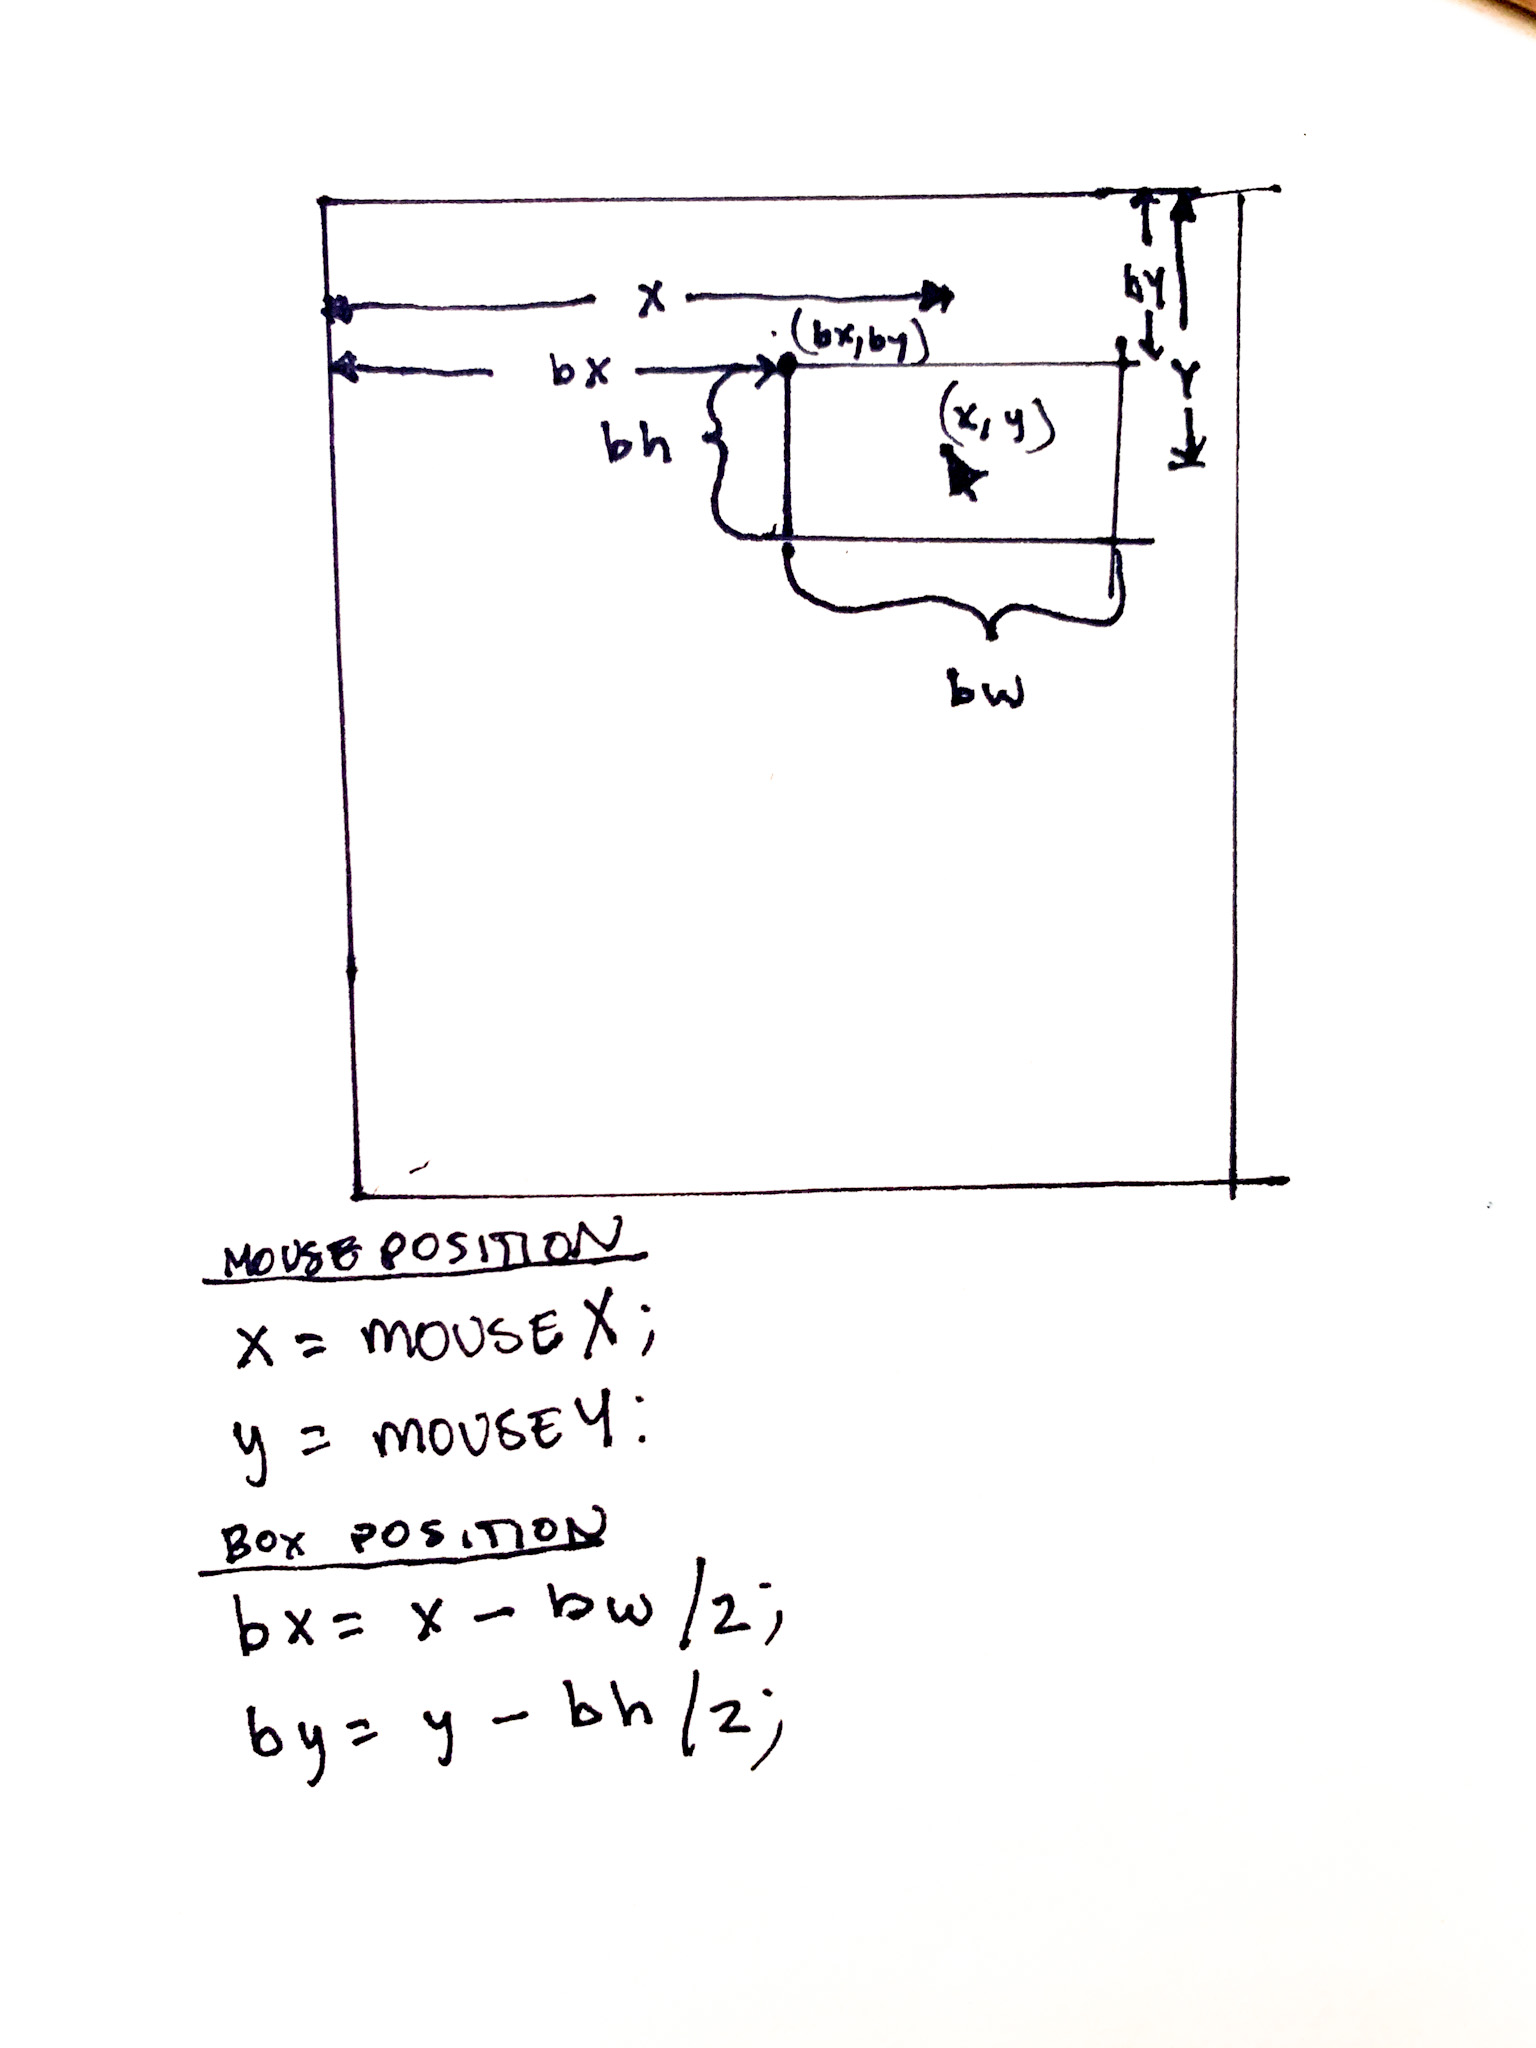 by
x
(bx,by)
bx
Y
(x,y)
bh
bw
MOUSE POSITION
x = mouseX;
y = mouseY:
BOX POSITION
bx = x - bw/2;
by = y - bh/2;